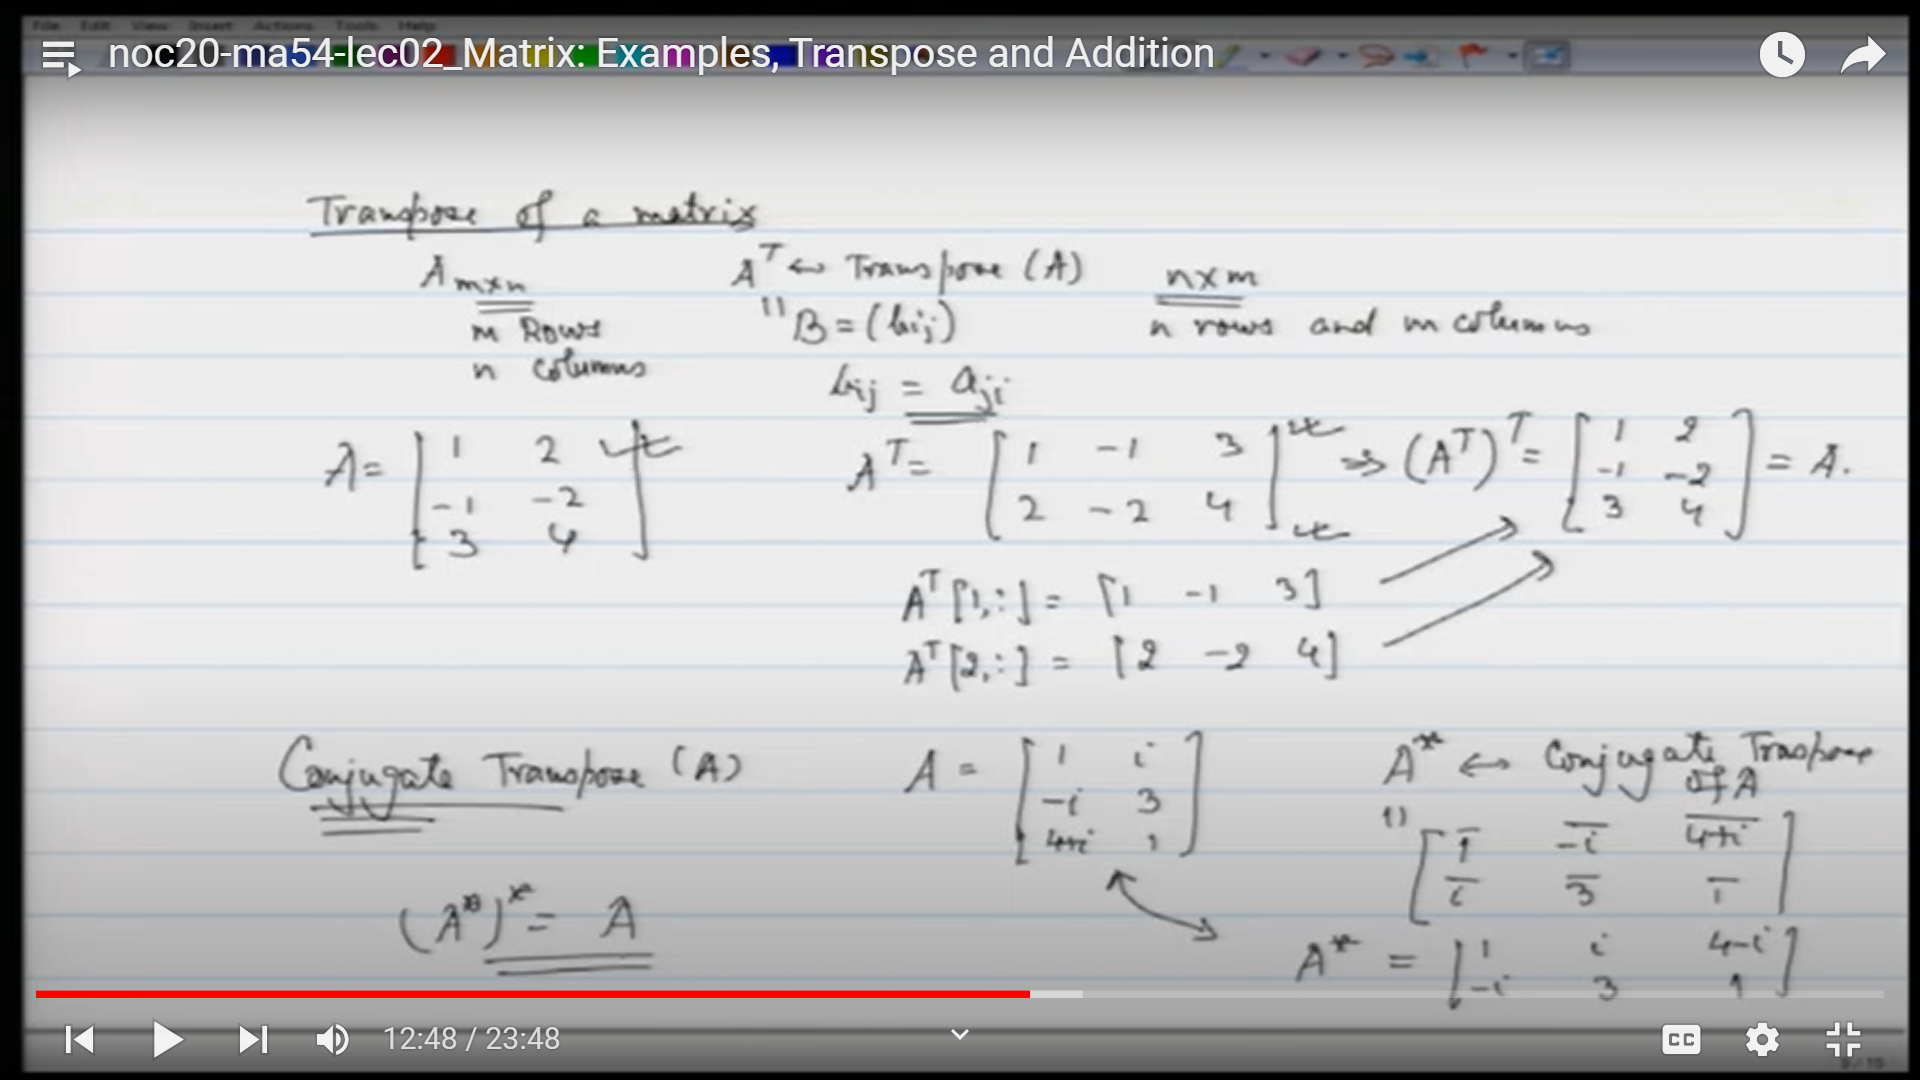 File Edit View Insert Actions Tools Help
noc20-ma54-lec02_Matrix: Examples, Transpose and Addition
Transpose of a matrix
A m×n
m Rows
n columns
A^T ↔ Transpose (A)
" B = (bij)
bij = aji
n×m
n rows and m columns
A = [1 2
-1 -2
3 4]
A^T = [1 -1 3
2 -2 4]
⇒ (A^T)^T = [1 2
-1 -2
3 4] = A.
A^T[1,:] = [1 -1 3]
A^T[2,:] = [2 -2 4]
Conjugate Transpose (A)
(A*)* = A
A = [1 i
-i 3
4+i 1]
A* ↔ Conjugate Traspose
of A
" [1̅ -i̅ 4+i̅
i̅ 3̅ 1̅]
A* = [1 i 4-i
-i 3 1]
12:48 / 23:48
CC